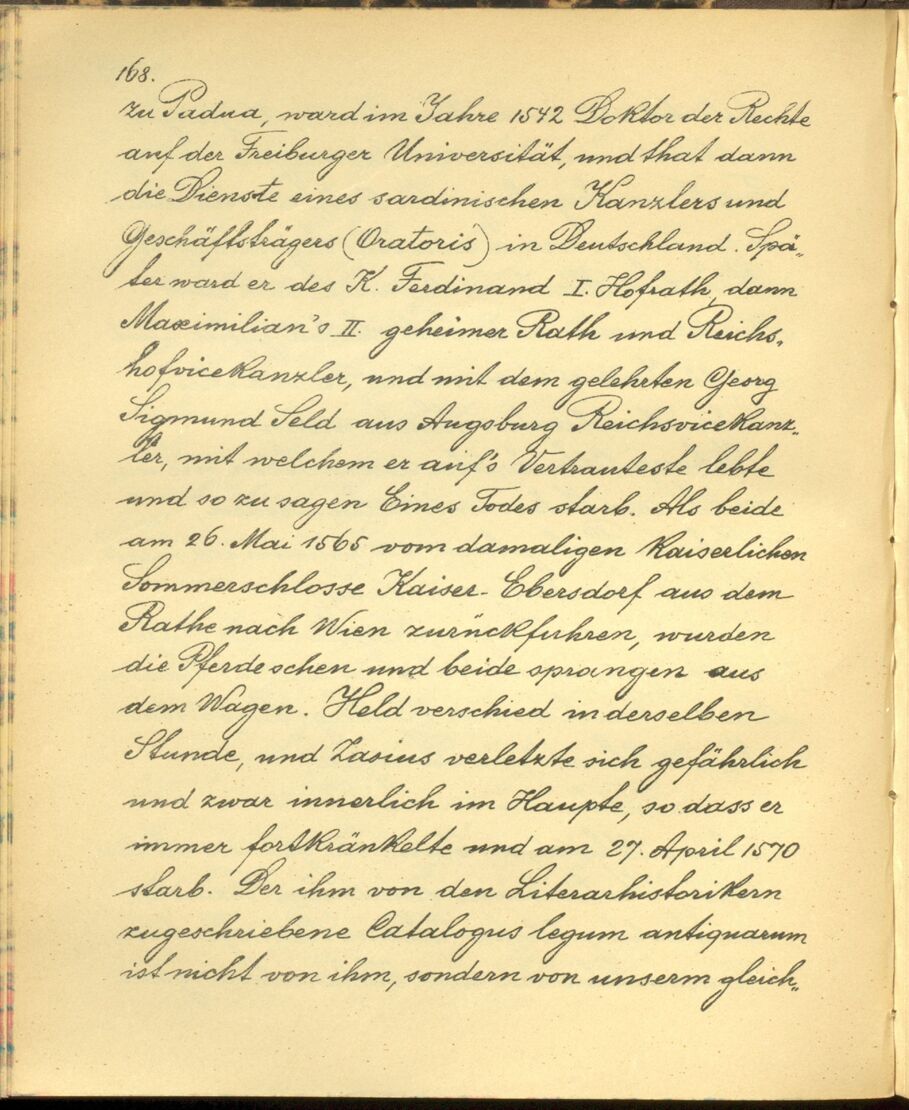 168.
zu Padua, ward im Jahre 1542 Doktor der Rechte
auf der Freiburger Universität, und that dann
die Dienste eines sardinischen Kanzlers und
Geschäftsträgers (Oratoris) in Deutschland. Spä„
ter ward er des K. Ferdinand I. Hofrath, dann
Maximilian's II. geheimer Rath und Reichs„
hofvicekanzler, und mit dem gelehrten Georg
Sigmund Seld aus Augsburg Reichsvicekanz„
ler, mit welchem er auf's Vertrauteste lebte
und so zu sagen Eines Todes starb. Als beide
am 26. Mai 1565 vom damaligen kaiserlichen
Sommerschlosse Kaiser-Ebersdorf aus dem
Rathe nach Wien zurückfuhren, wurden
die Pferde schen und beide sprangen aus
dem Wagen. Held verschied in derselben
Stunde, und Zasius verletzte sich gefährlich
und zwar innerlich im Haupte, so dass er
immer fortkränkelte und am 27. April 1570
starb. Der ihm von den Literarhistorikern
zugeschriebene Catalogus legum antiquarum
ist nicht von ihm, sondern von unserm gleich„